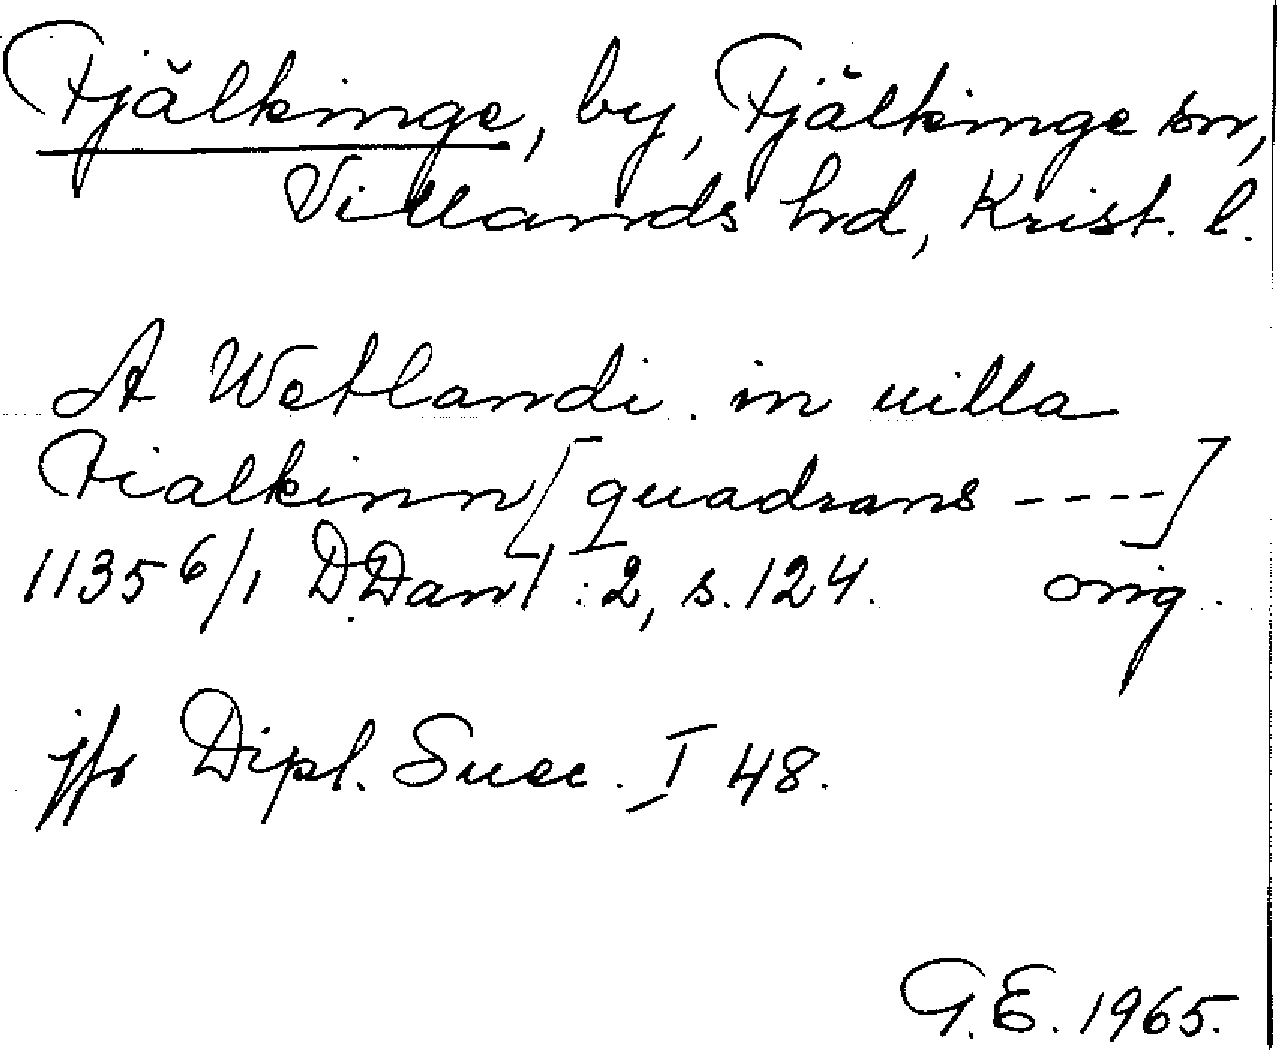 Fjälkinge, by, Fjälkinge sn,
Villands hd, Krist. l.
A Wetlandi. in uilla
Fialkinn [quadrans ----]
1135 6/1 D.Dan I:2, s. 124. orig.
jfr Dipl. Suec. I 48.
G.E. 1965.